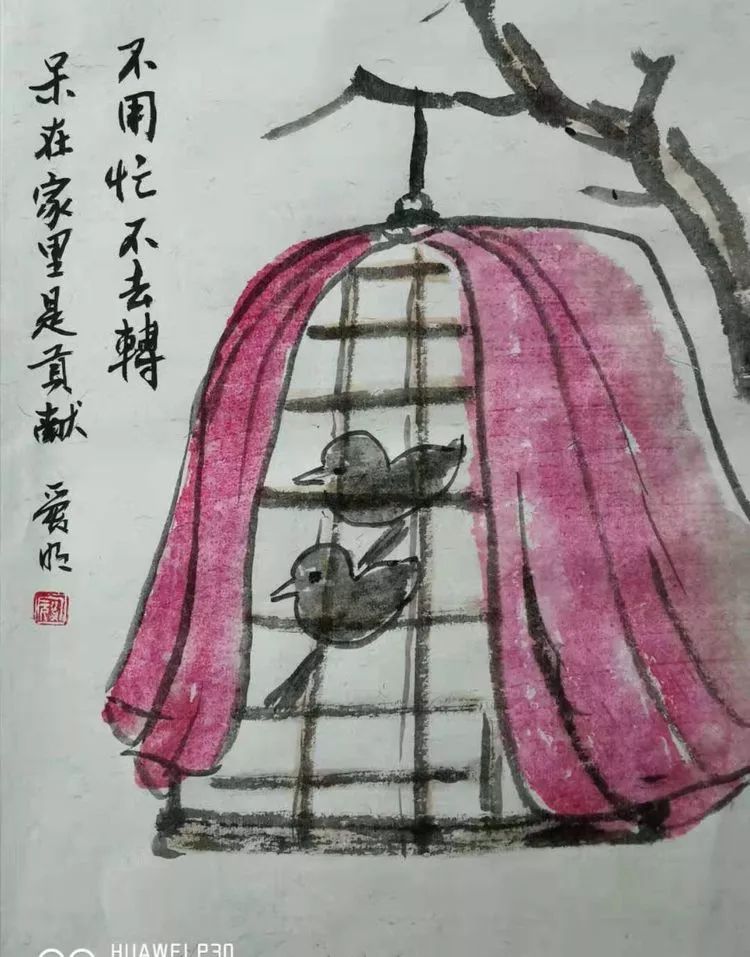 不用忙不去轉
呆在家里是貢献
爱明
HUAWEI P30